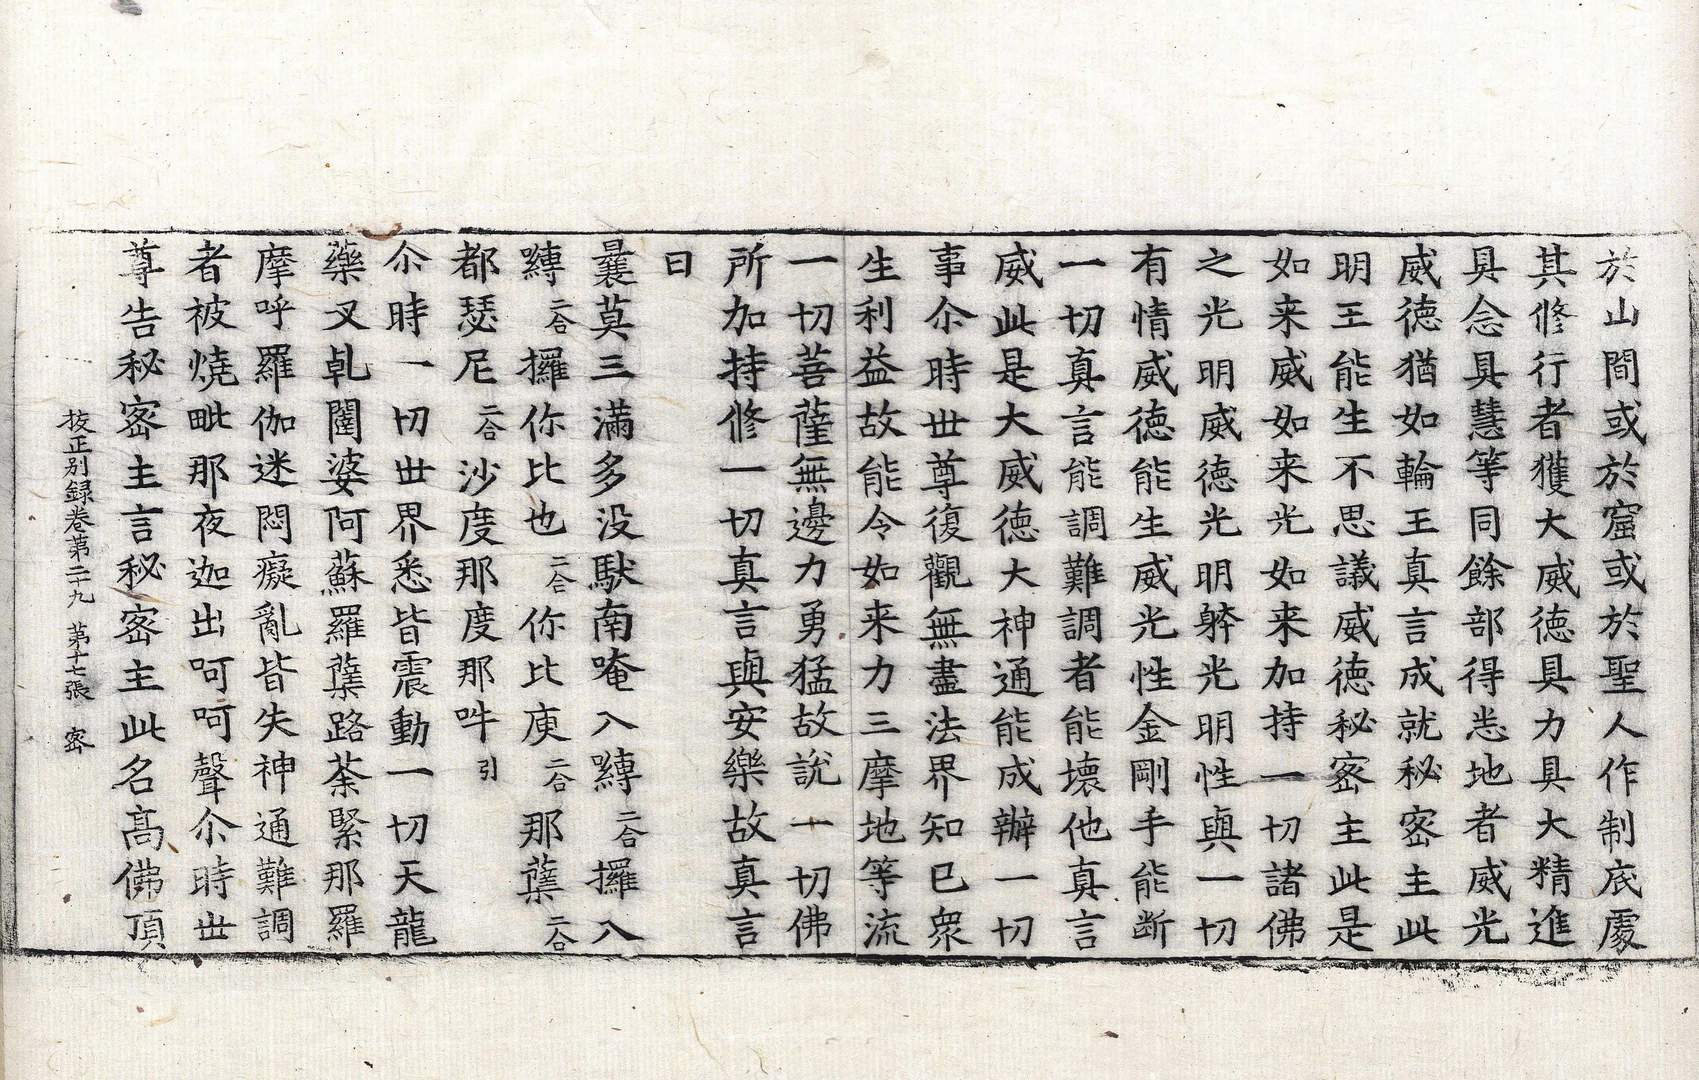 於山間或於窟或於聖人作制底處
其修行者獲大威徳具力具大精進
具念具慧等同餘部得悉地者威光
威徳猶如輪王真言成就秘密主此
明王能生不思議威徳秘密主此是
如来威如来光如来加持一切諸佛
之光明威徳光明躰光明性與一切
有情威徳能生威光性金剛手能断
一切真言能調難調者能壞他真言
威此是大威徳大神通能成辦一切
事尒時世尊復觀無盡法界知已衆
生利益故能令如来力三摩地等流
一切菩薩無邊力勇猛故說一切佛
所加持修一切真言與安樂故真言
曰
曩莫三滿多没馱南唵入嚩二合攞入
嚩二合攞你比也二合你比庾二合那蘖二合
都瑟尼二合沙度那度那吽引
尒時一切世界悉皆震動一切天龍
藥叉乹闥婆阿蘇羅蘖路荼緊那羅
摩呼羅伽迷悶癡亂皆失神通難調
者被燒毗那夜迦出呵呵聲尒時世
尊告秘密主言秘密主此名髙佛頂
挍正別録卷第二十九 第十七張 密